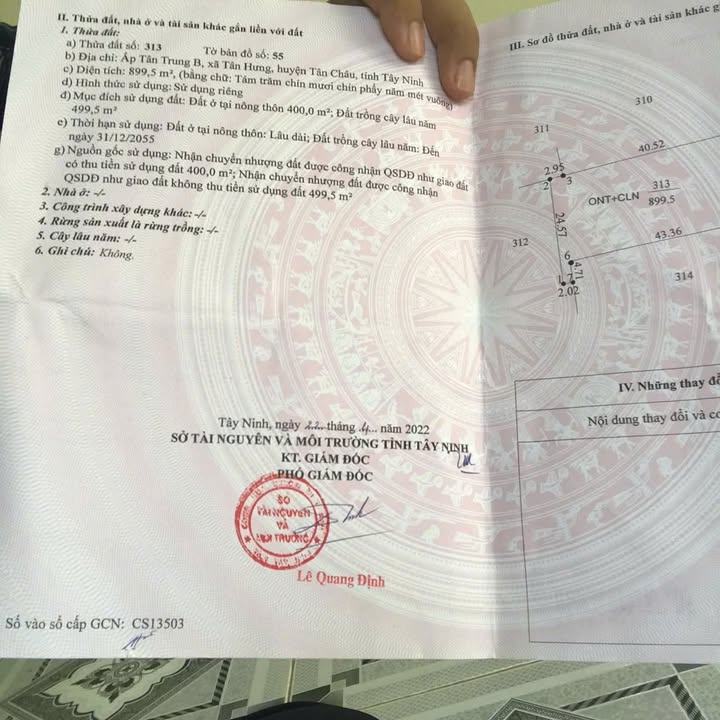 II. Thửa đất, nhà ở và tài sản khác gắn liền với đất
1. Thửa đất:
a) Thửa đất số: 313 Tờ bản đồ số: 55
b) Địa chỉ: Ấp Tân Trung B, xã Tân Hưng, huyện Tân Châu, tỉnh Tây Ninh
c) Diện tích: 899,5 m², (bằng chữ: Tám trăm chín mươi chín phẩy năm mét vuông)
d) Hình thức sử dụng: Sử dụng riêng
đ) Mục đích sử dụng đất: Đất ở tại nông thôn 400,0 m²; Đất trồng cây lâu năm
499,5 m²
e) Thời hạn sử dụng: Đất ở tại nông thôn: Lâu dài; Đất trồng cây lâu năm: Đến
ngày 31/12/2055
g) Nguồn gốc sử dụng: Nhận chuyển nhượng đất được công nhận QSDĐ như giao đất
có thu tiền sử dụng đất 400,0 m²; Nhận chuyển nhượng đất được công nhận
QSDĐ như giao đất không thu tiền sử dụng đất 499,5 m²
2. Nhà ở: -/-
3. Công trình xây dựng khác: -/-
4. Rừng sản xuất là rừng trồng: -/-
5. Cây lâu năm: -/-
6. Ghi chú: Không.
Tây Ninh, ngày 22 tháng 4 năm 2022
SỞ TÀI NGUYÊN VÀ MÔI TRƯỜNG TỈNH TÂY NINH
KT. GIÁM ĐỐC
PHÓ GIÁM ĐỐC
SỞ
TÀI NGUYÊN
VÀ
MÔI TRƯỜNG
Lê Quang Định
Số vào sổ cấp GCN: CS13503
III. Sơ đồ thửa đất, nhà ở và tài sản khác g
310
311
40.52
2.95
2
3
ONT+CLN
313
899.5
24.57
312
43.36
6
4.71
314
1
7
2.02
IV. Những thay đổ
Nội dung thay đổi và cơ